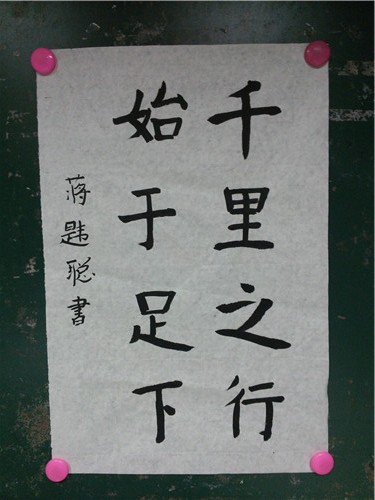 千里之行
始于足下
蒋韪聪書